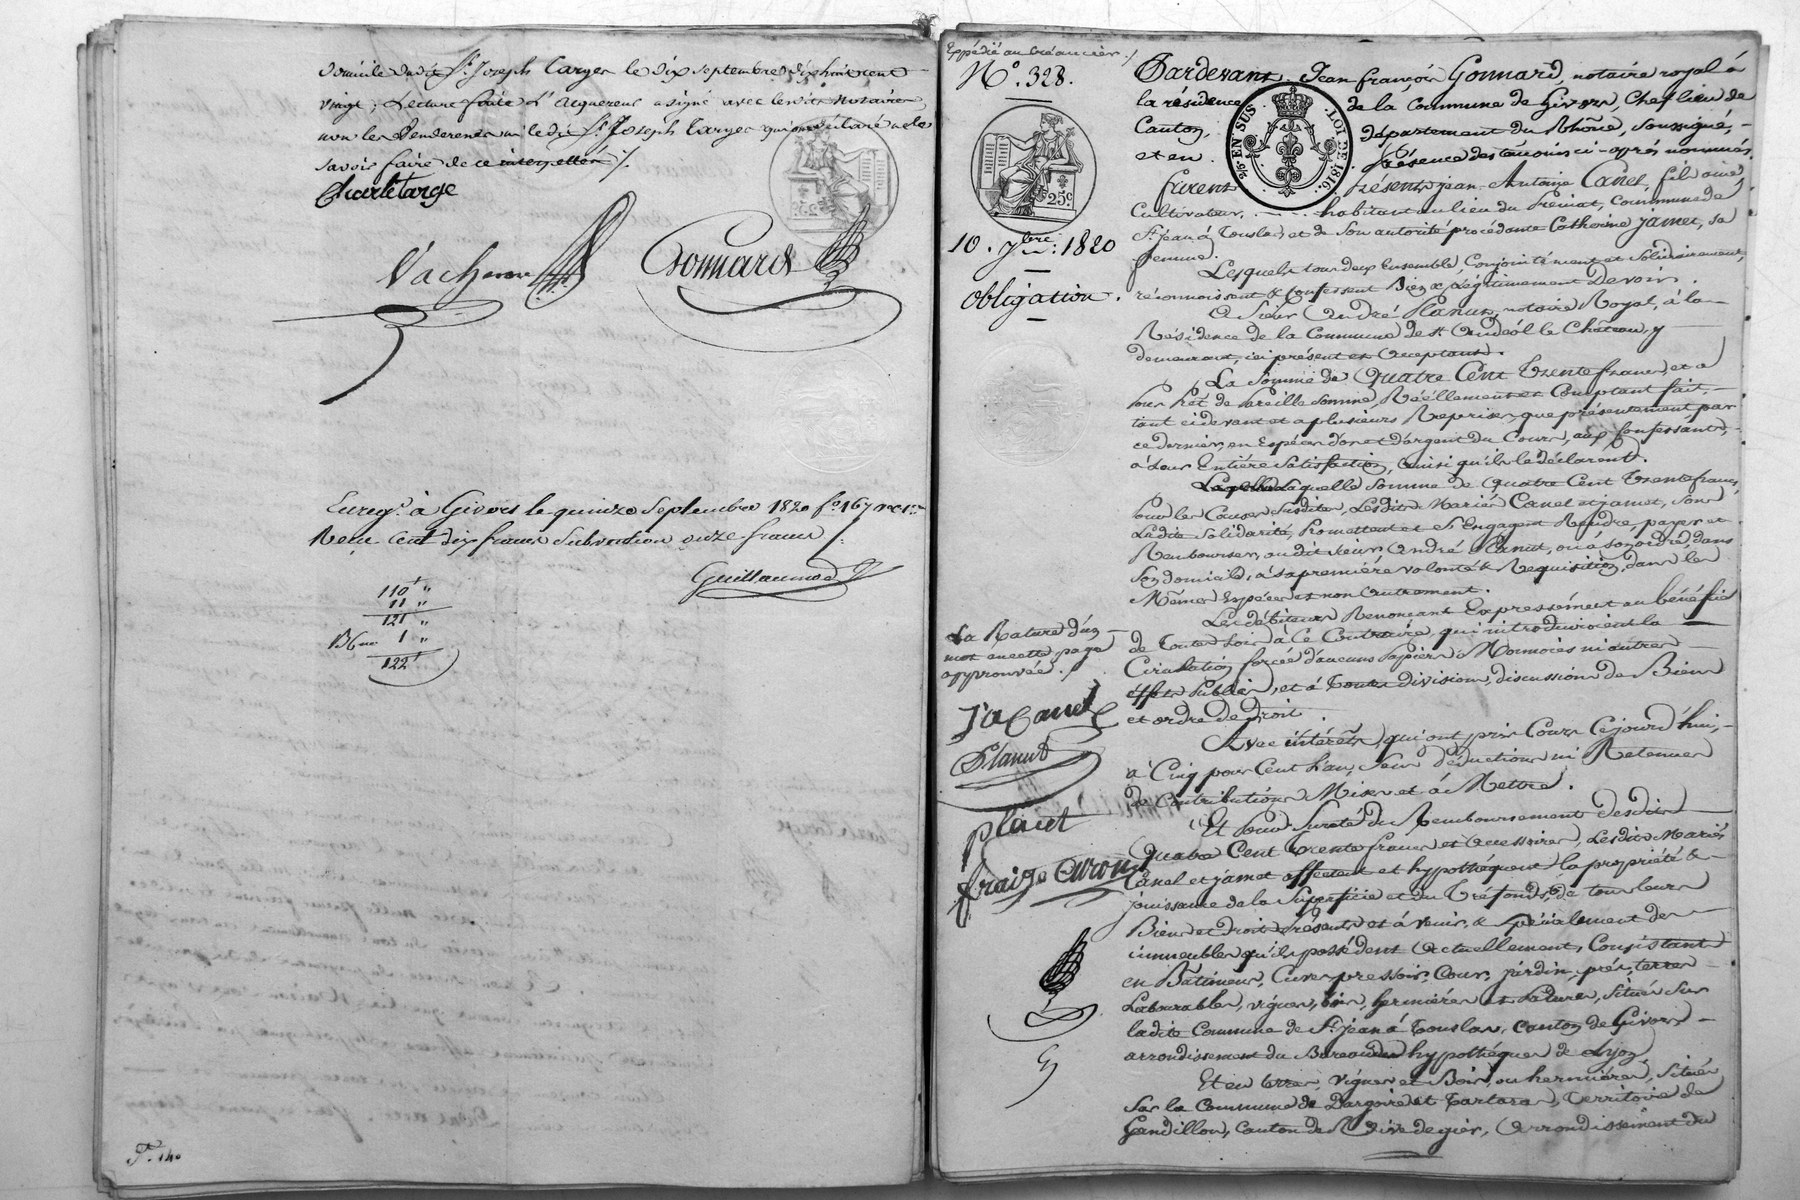 domicile dudit Sr. Joseph Targes le dix septembre dix huit cent
vingt; Lecture faite L'acquereur a signé avec lesdits Notaires,
non les Venderesses ni le dit Sr. Joseph Targes qui ont déclaré ne le
savoir faire de ce interpellés /.
Charle targe
Vacheron
Gonnard
Enregt. à Givors le quinze Septembre 1820 fo. 167
Reçu Cent dix francs Subvention onze francs /.
Guillaumod
110 "
11 "
121 "
1 "
122
F. 140
Expédié au créancier /
No. 328.
25 c.
10. 7bre. 1820
Obligation.
La Rature d'un
mot en cette page
approuvée.
J A Canel
Planut
fraize Caron
EN SUS. LOI DE 1816.
Pardevant Jean françois Gonnard, notaire royal à
la résidence de la Commune de Givors, Chef lieu de
Canton, département du Rhône, soussigné,
et en présence des témoins ci-après nommés
furent présents jean-Antoine Canel, fils ainé,
Cultivateur, habitant au lieu du fremat, Commune de
St. Jean à Touslas, et de son autorité procédante Catherine jamet, sa
femme.
Lesquels tous deux Ensemble, Conjointement et Solidairement,
réconnoissent & Confessent Bien & Légitimement Devoir.
A Sieur André Planut, notaire Royal, à la
Résidence de la Commune de St. Andéol le Château, y
demeurant, ici présent et Acceptant.
La Somme de Quatre Cent Trente francs, et a
pour Prêt de Pareille Somme, Réellement et Comptant fait,
tant cidevant et a plusieurs Reprises, que présentement, par
ce dernier, en Espèces d'or et d'argent du Cours, aux Confessants,
à Leur Entière Satisfaction, Ainsi qu'ils le déclarent.
Laquelle Somme de Quatre Cent Trente francs,
Pour les Causes Susdites, Lesdits Mariés Canel et jamet, Sous
Ladite Solidarité, Promettent et S'Engagent Rendre, payer et
Rembourser, audit Sieur André Planut, ou à son ordre, dans
Son domicile, à sa première volonté & Requisition, dans les
Mêmes Espèces et non Autrement.
Les débiteurs Renonçant Expressément au bénéfice
de Toutes Loix à Ce Contraire, qui introduiroient la
Circulation forcée d'aucuns Papiers Monnoies ni autres
effets Publics, et à Toutes divisions, discussions de Biens
et ordre de droit.
Avec intérêts, qui ont pris Cours Cejourd'hui,
à Cinq pour Cent L'an, Sans Déductions ni Retenues
de Contributions Mises et à Mettre.
Et Pour Sureté du Remboursement desdits
Quatre Cent Trente francs et Accessoires, Lesdits Mariés
Canel et jamet affectent et hypothéquent la propriété &
jouissance de la Superficie et du Tréfonds, de tous leurs
Biens et Droits présents et à venir, & Spécialement des
immeubles qu'ils possèdent Actuellement, Consistant
en Bâtiments, Cuves, pressoir, Cour, jardin, prés, terres
Labourables, vignes, bois, hermières et Patures, situés sur
ladite Commune de St. jean à Touslas, canton de Givors
arrondissement du Bureau des hypothéques de Lyon,
Et en terres, Vignes et Bois, ou hermières, Situés
Sur la Commune de Dargoire et Tartaras, Territoire de
Gandillon, canton de Rive de gier, Arrondissement du